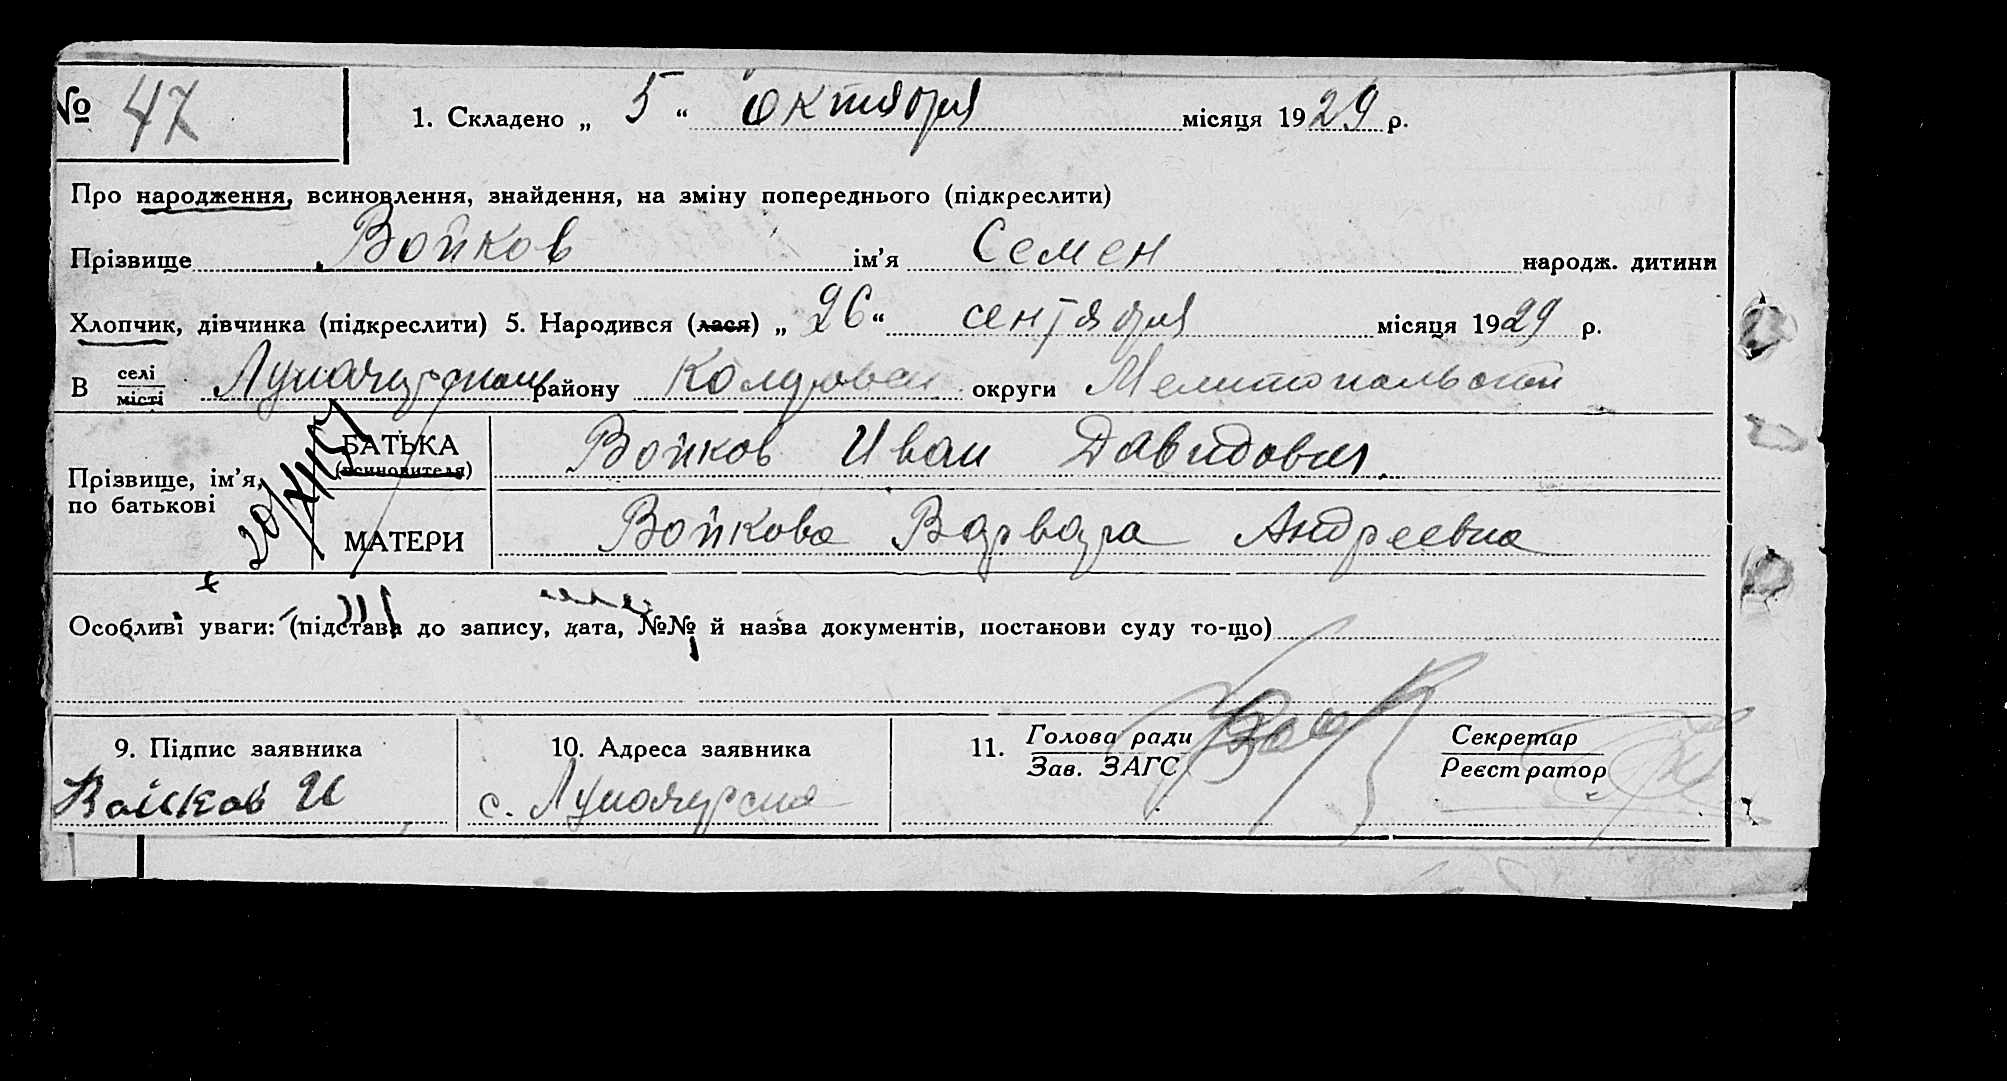 № 47
1. Складено „ 5 “ октября місяця 1929 р.
Про народження, всиновлення, знайдення, на зміну попереднього (підкреслити)
Прізвище Войков ім'я Семен народж. дитини
Хлопчик, дівчинка (підкреслити) 5. Народився (лася) „ 26 “ сентября місяця 1929 р.
В селі місті району округи Мелитопольской
Прізвище, ім'я, по батькові
БАТЬКА (всиновителя) Войков Иван Давидович
МАТЕРИ Войкова Варвара Андреевна
Особливі уваги: (підстава до запису, дата, №№ й назва документів, постанови суду то-що)
9. Підпис заявника
10. Адреса заявника
11. Голова ради Зав. ЗАГС
Секретар Реєстратор
Войков И
с.